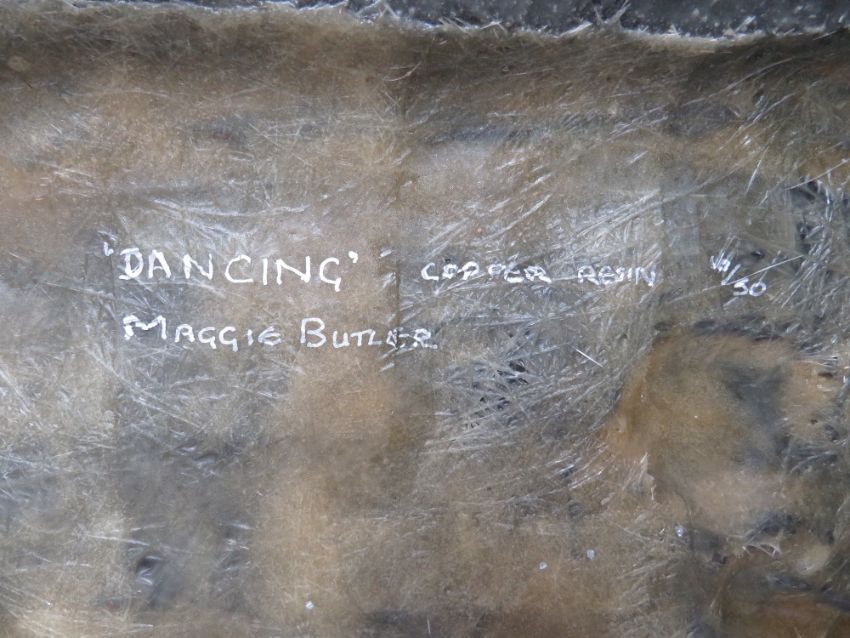 'DANCING' COPPER RESIN /50
MAGGIE BUTLER